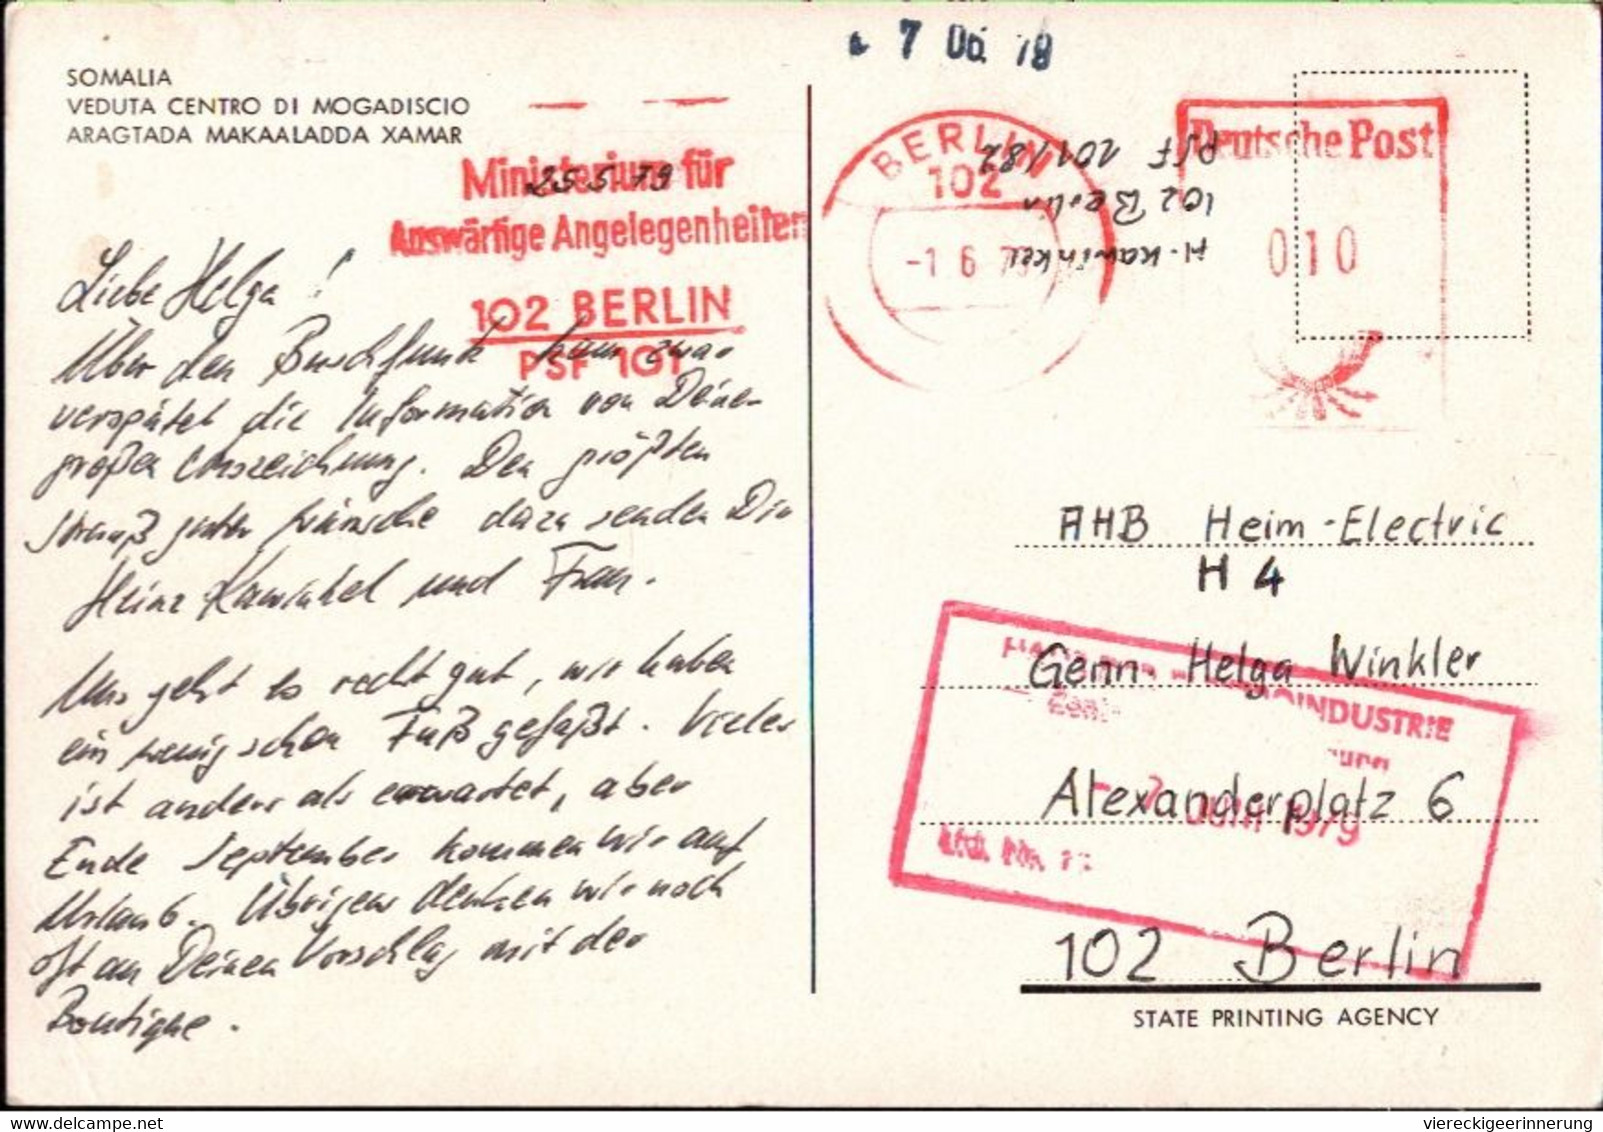 SOMALIA
VEDUTA CENTRO DI MOGADISCIO
ARAGTADA MAKAALADDA XAMAR
25.5.79
Ministerium für
Auswärtige Angelegenheiten
102 BERLIN
PSF 101
Liebe Helga!
Über den Buschfunk kam zwar
verspätet die Information von Deiner
großen Auszeichnung. Den größten
Strauß guter Wünsche dazu senden Dir
Heinz Kawinkel und Frau.
Uns geht es recht gut, wir haben
ein wenig schon Fuß gefaßt. Vieles
ist anders als erwartet, aber
Ende September kommen wir auf
Urlaub. Übrigens denken wir noch
oft an Deinen Vorschlag mit der
Boutique.
7 06. 79
BERLIN
102
-1 6 7
Deutsche Post
010
H. Kawinkel
102 Berlin
PSF 101/82
AHB Heim-Electric
H 4
Genn. Helga Winkler
Alexanderplatz 6
102 Berlin
INDUSTRIE
1979
STATE PRINTING AGENCY
delcampe.net
viereckigeerinnerung